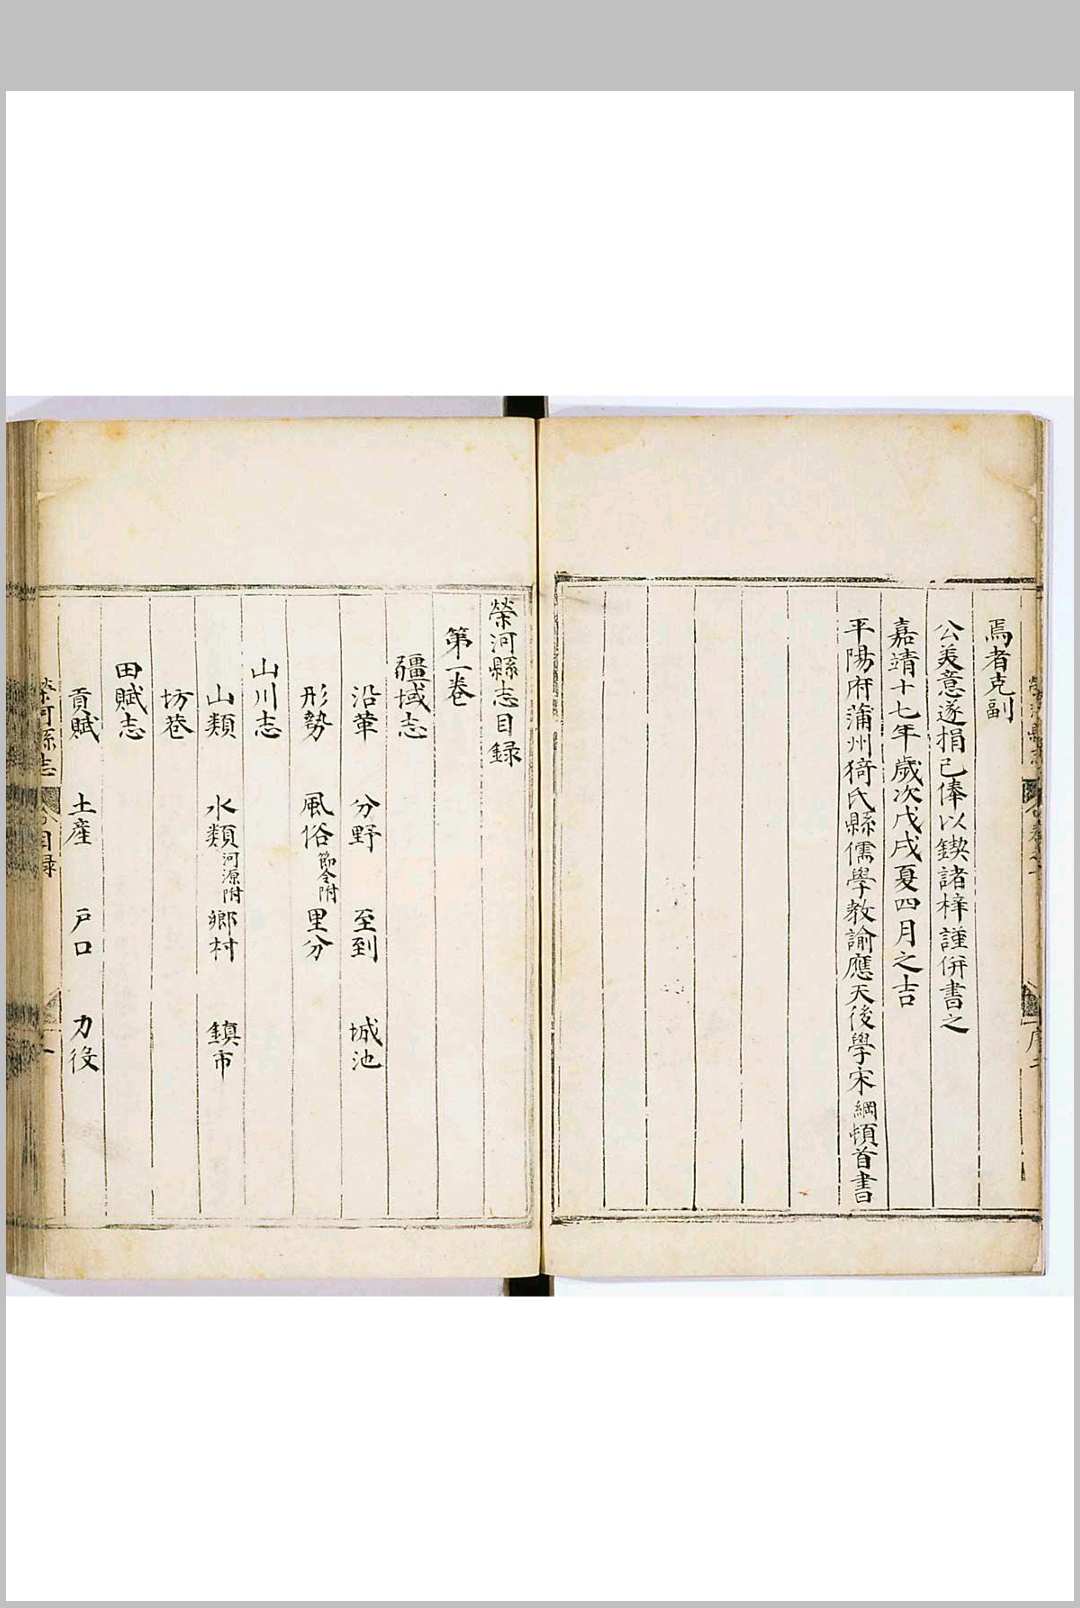 焉者克副
公美意遂捐己俸以鍥諸梓謹併書之
嘉靖十七年歲次戊戌夏四月之吉
平陽府蒲州猗氏縣儒學教諭應天後學宋綱頓首書
榮河縣志目録
第一卷
疆域志
沿革 分野 至到 城池
形勢 風俗節令附 里分
山川志
山類 水類河源附 鄉村 鎮市
坊巷
田賦志
貢賦 土産 戸口 力役
榮河縣志 目録 一